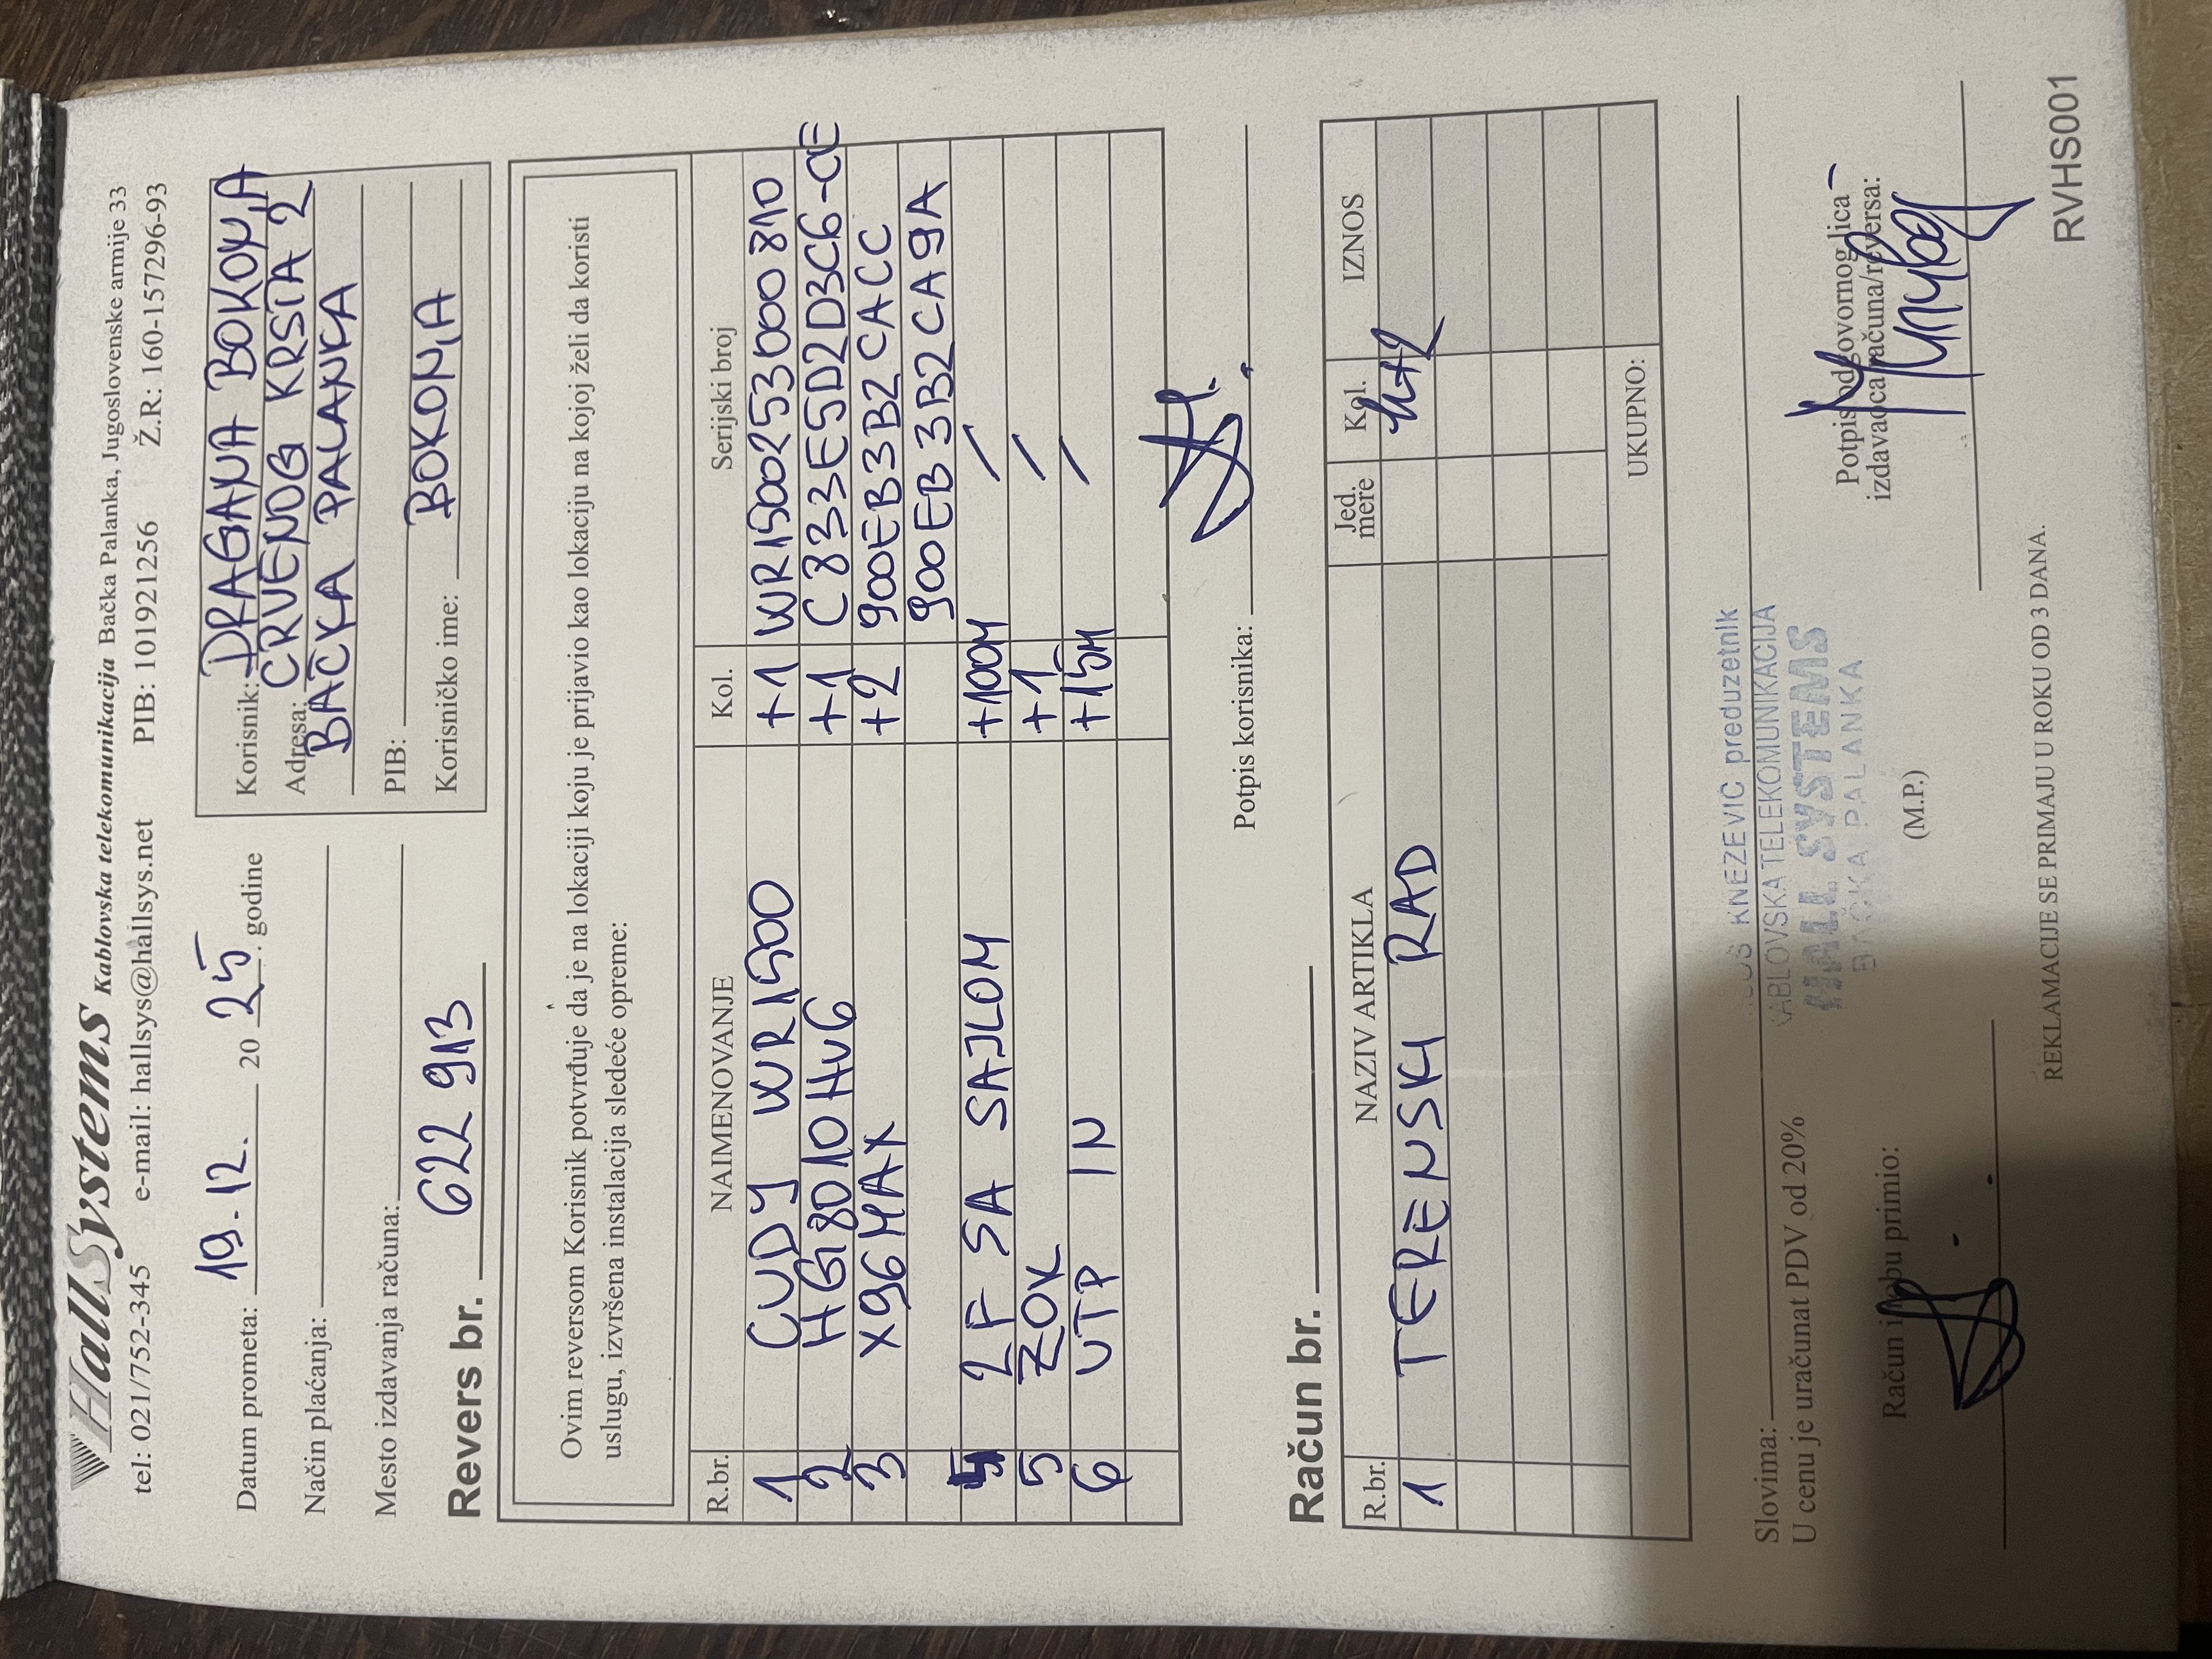 HallSystems Kablovska telekomunikacija Bačka Palanka, Jugoslovenske armije 33
tel: 021/752-345 e-mail: hallsys@hallsys.net PIB: 101921256 Ž.R.: 160-157296-93
Datum prometa: 19.12. 20 25. godine
Način plaćanja:
Mesto izdavanja računa:
Korisnik: DRAGANA BOKONJA
Adresa: CRVENOG KRSTA 2
BAČKA PALANKA
PIB:
Korisničko ime: BOKONJA
Revers br. 622 913
Ovim reversom Korisnik potvrđuje da je na lokaciji koju je prijavio kao lokaciju na kojoj želi da koristi
uslugu, izvršena instalacija sledeće opreme:
R.br. NAIMENOVANJE Kol. Serijski broj
1 CUDY WR1500 +1 WR1500253000810
2 HG8010Hv6 +1 C833E5D2D3C6-CE
3 X96MAX +2 900EB3B2CACC
900EB3B2CA9A
4 2F SA SAJLOM +100M /
5 ZOK +1 /
6 UTP IN +15M /
Potpis korisnika:
Račun br.
R.br. NAZIV ARTIKLA Jed. mere Kol. IZNOS
1 TERENSKI RAD
UKUPNO:
Slovima:
U cenu je uračunat PDV od 20%
KNEZEVIC preduzetnik
KABLOVSKA TELEKOMUNIKACIJA
HALL SYSTEMS
BAČKA PALANKA
Račun i robu primio:
(M.P.)
Potpis odgovornog lica
izdavaoca računa/reversa:
REKLAMACIJE SE PRIMAJU U ROKU OD 3 DANA.
RVHS001